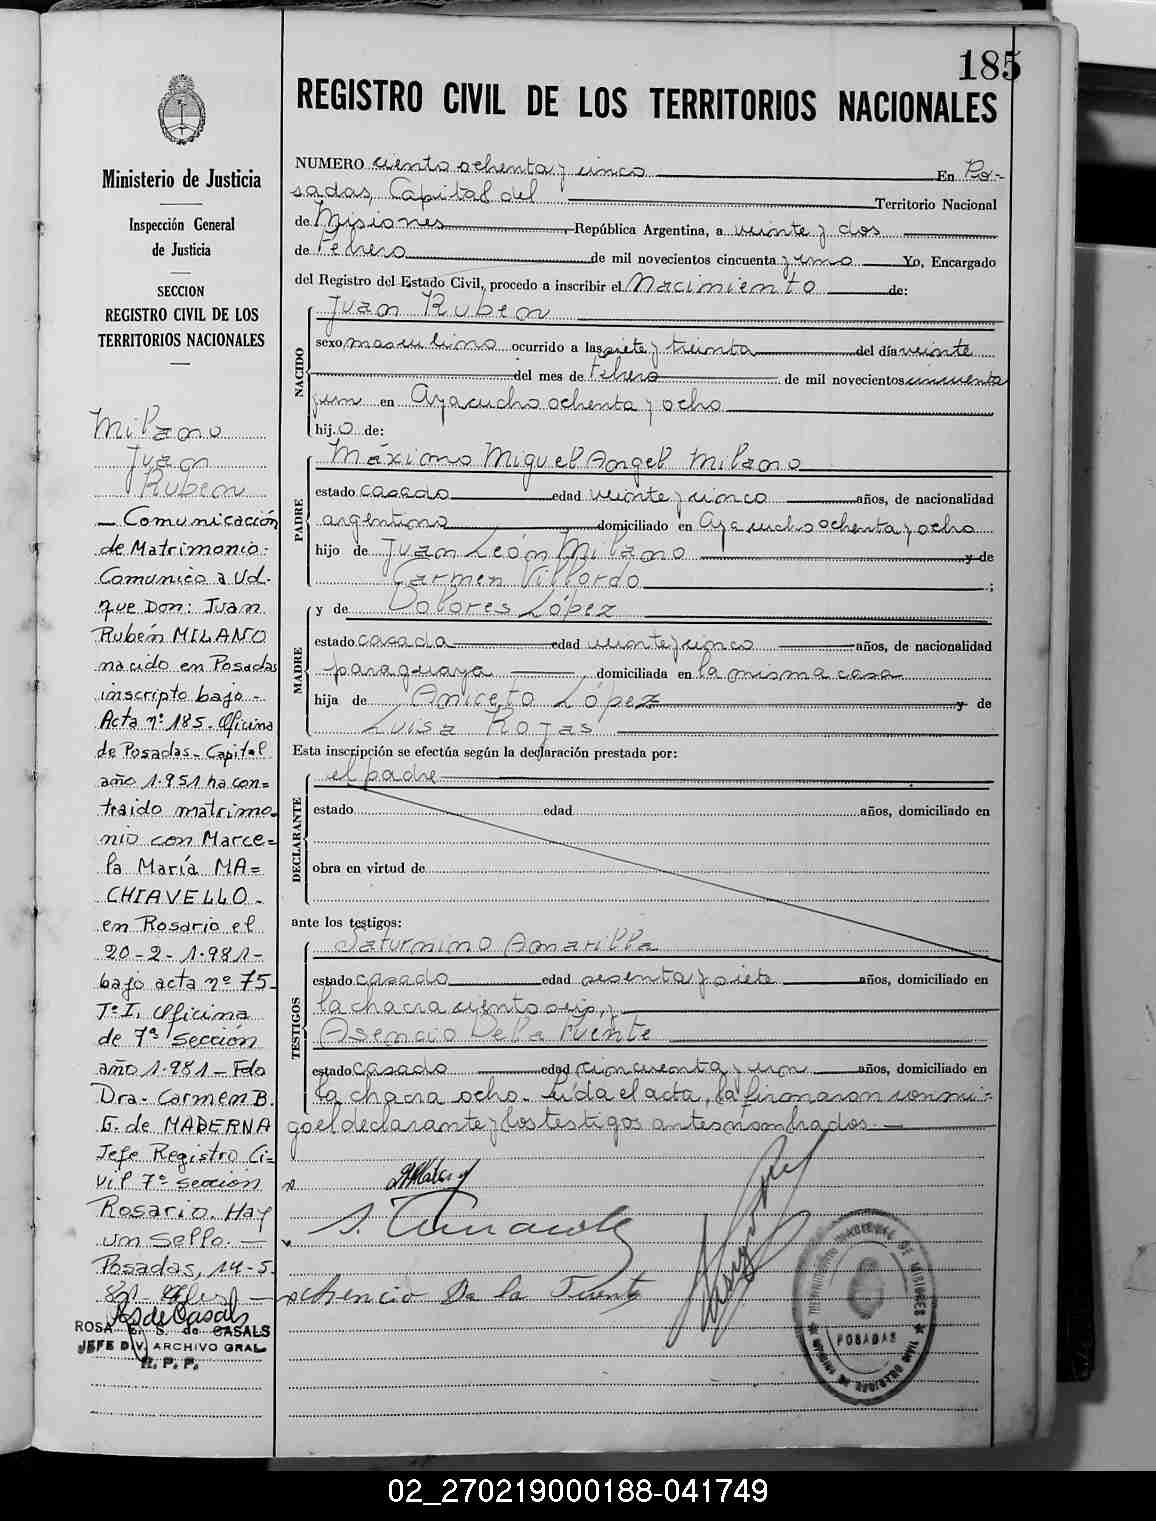 185
REGISTRO CIVIL DE LOS TERRITORIOS NACIONALES
Ministerio de Justicia
Inspección General
de Justicia
SECCION
REGISTRO CIVIL DE LOS
TERRITORIOS NACIONALES
Milano
Juan
Ruben
— Comunicación
de Matrimonio:
Comunico a Ud.
que Don: Juan
Rubén MILANO
nacido en Posadas
inscripto bajo -
Acta nº 185. Oficina
de Posadas - Capital
año 1.951 ha con=
traido matrimo=
nio con Marce=
la María MA=
CHIAVELLO -
en Rosario el
20-2-1.981-
bajo acta nº 75-
Tº I. Oficina
de 7ª Sección
año 1.981 - Fdo
Dra. Carmen B.
G. de MADERNA
Jefe Registro Ci=
vil 7ª sección
Rosario. Hay
un sello. —
Posadas, 14-5-
ROSA E. S. de CASALS
JEFE DIV. ARCHIVO GRAL.
R. P. P.
NUMERO ciento ochenta y cinco En Po-
sadas, Capital del Territorio Nacional
de Misiones, República Argentina, a veinte y dos
de Febrero de mil novecientos cincuenta y uno Yo, Encargado
del Registro del Estado Civil, procedo a inscribir el Nacimiento de:
NACIDO
Juan Ruben
sexo masculino ocurrido a las siete y treinta del día veinte
del mes de Febrero de mil novecientos cincuenta
y un en Ayacucho ochenta y ocho
hijo de:
PADRE
Máximo Miguel Angel Milano
estado casado edad veinte y cinco años, de nacionalidad
argentino domiciliado en Ayacucho ochenta y ocho
hijo de Juan León Milano y de
Carmen Villordo ;
MADRE
y de Dolores López
estado casada edad veinte y cinco años, de nacionalidad
paraguaya domiciliada en la misma casa
hija de Aniceto López y de
Luisa Rojas
Esta inscripción se efectúa según la declaración prestada por:
DECLARANTE
el padre
estado edad años, domiciliado en
obra en virtud de
ante los testigos:
TESTIGOS
Saturnino Amarilla
estado casado edad sesenta y siete años, domiciliado en
la chacra ciento seis, y
Asencio De la Fuente
estado casado edad cincuenta y un años, domiciliado en
la chacra ocho. Leída el acta, la firmaron conmi-
go el declarante y los testigos antes nombrados. —
Asencio De la Fuente
POSADAS
02_270219000188-041749